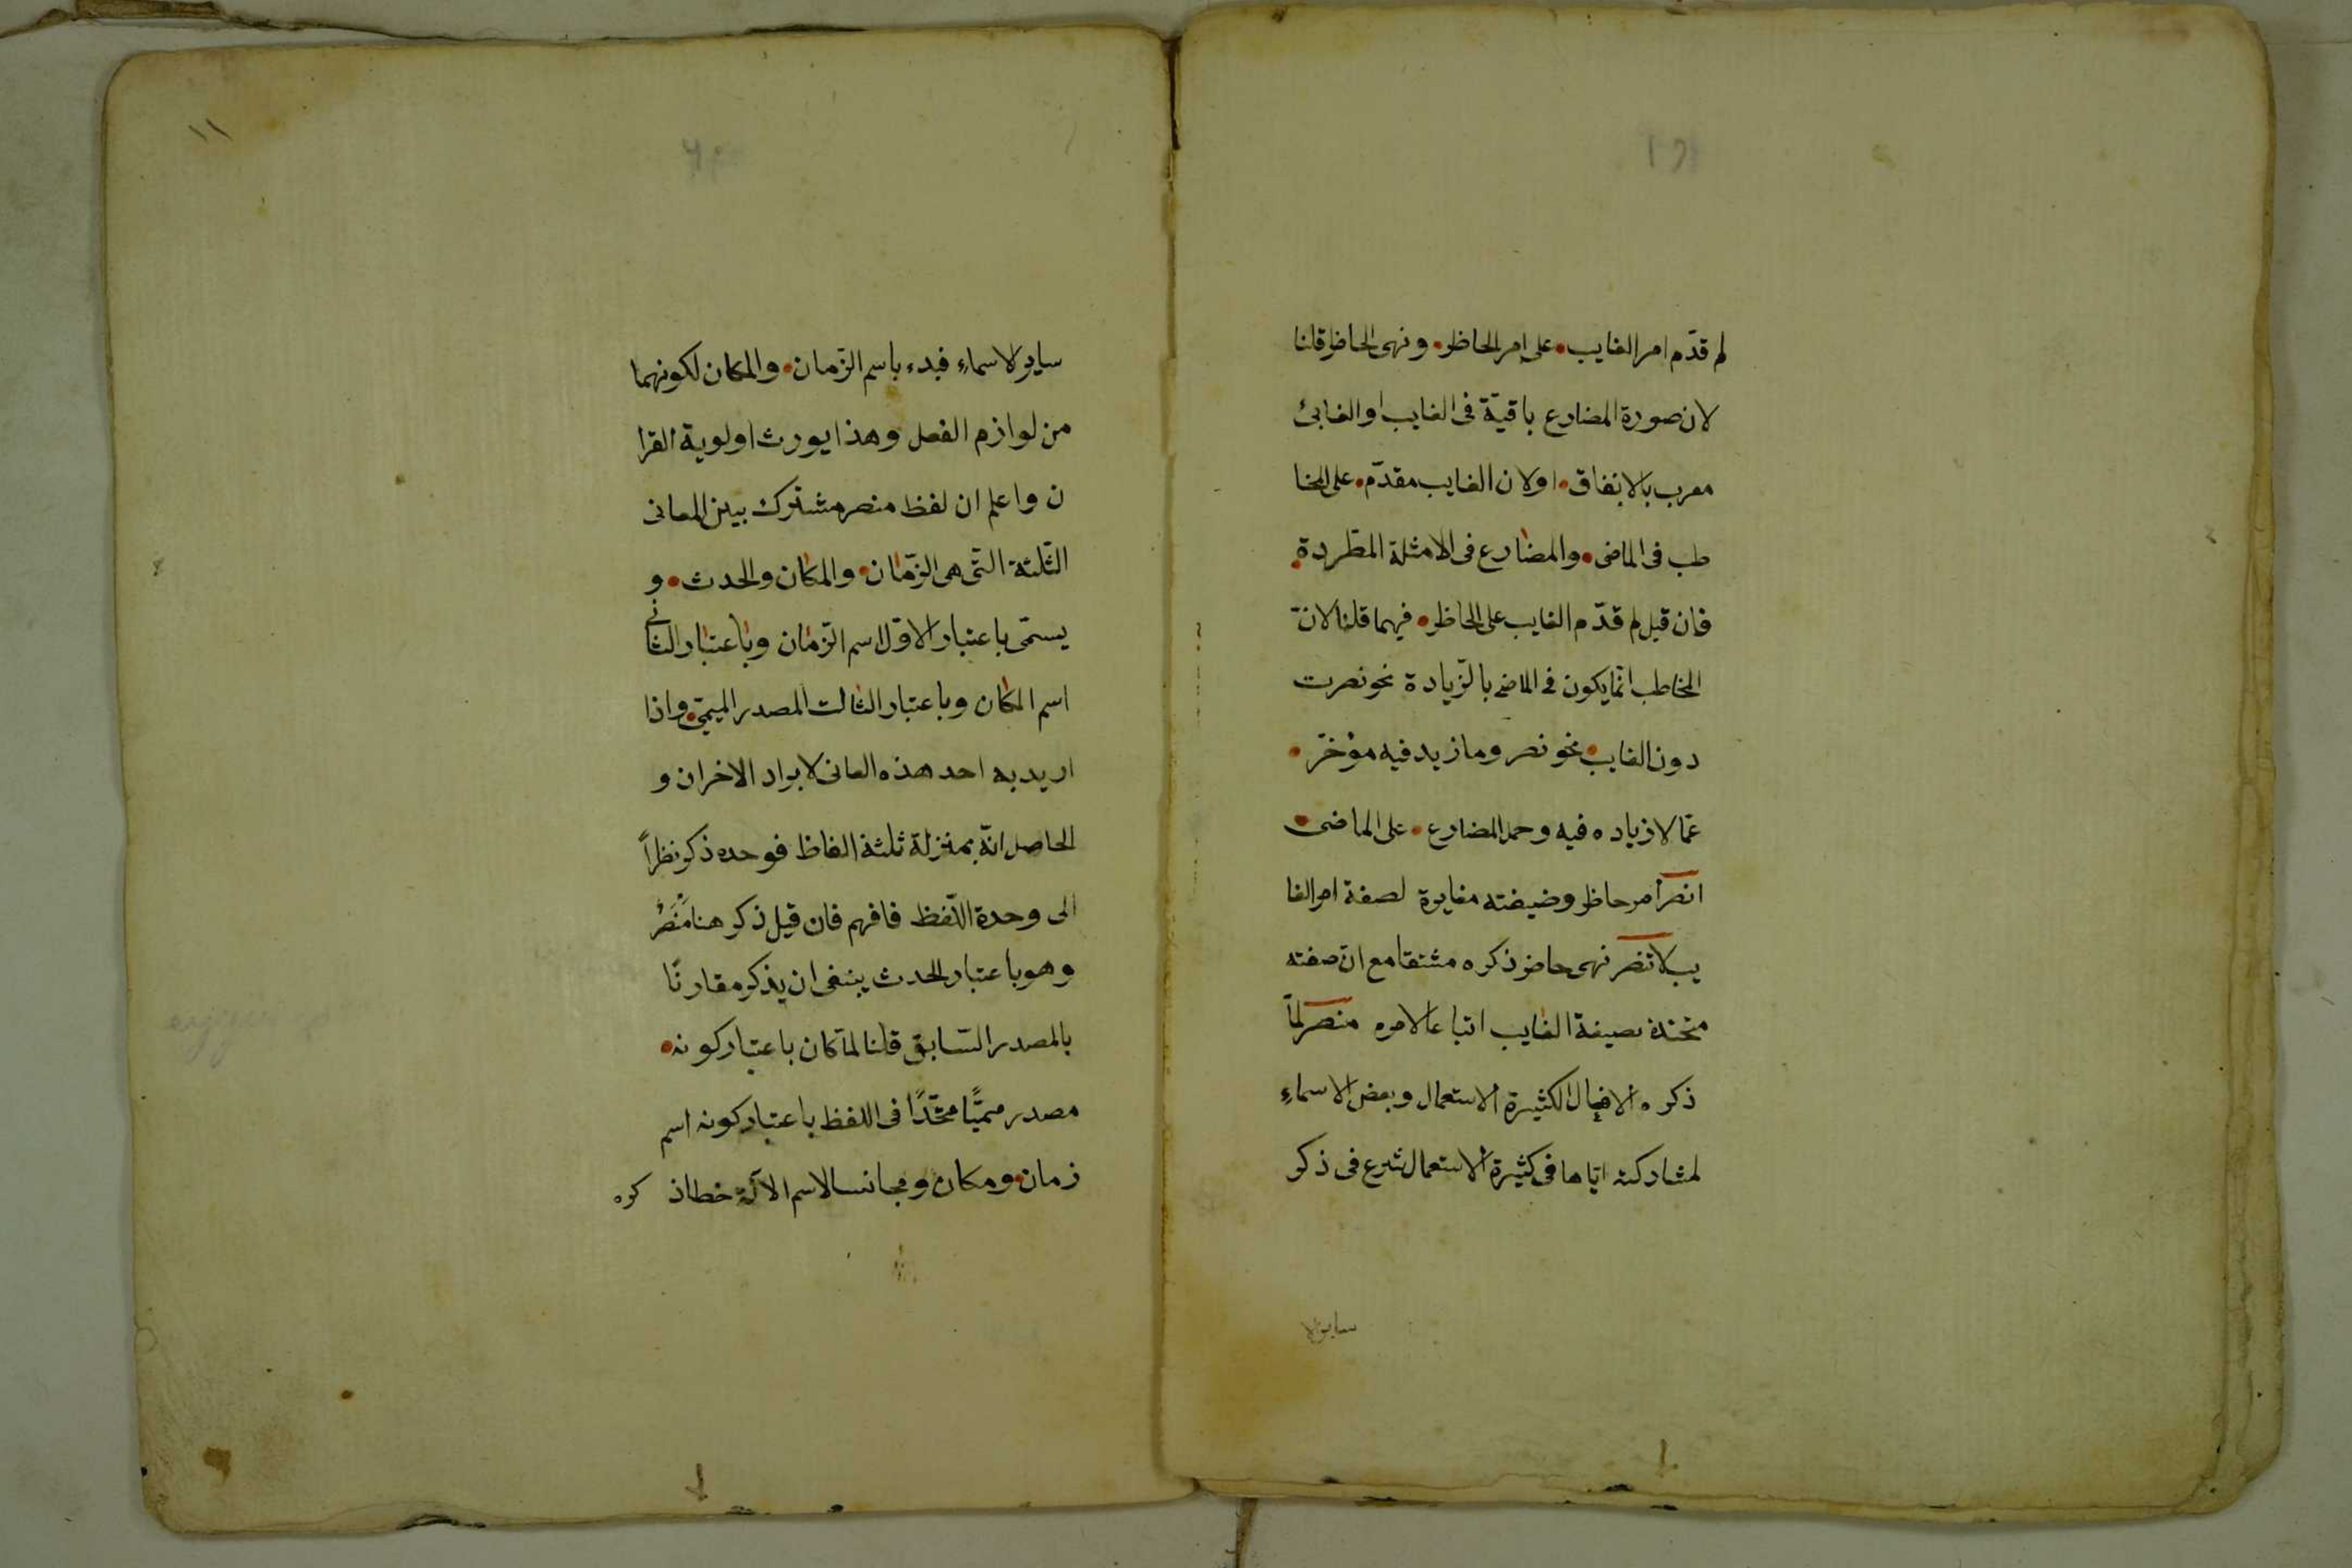 لم قدّم امر الغايب على امر الحاظر ونهى الحاظر قلنا
لان صورة المضارع باقيّة فى الغايب او الغابئ
معرب بالاتفاق اولان الغايب مقدّم على المخا
طب فى الماضى والمضارع فى الامثلة المطّردة
فان قيل لم قدّم الغايب على الحاظر فيهما قلنا لانّ
المخاطب انّما يكون فى الماضى بالزّيادة نحو نصرت
دون الغايب نحو نصر وما زيد فيه مؤخّر
عمّا لا زياده فيه وحمل المضارع على الماضى
انصر امر حاظر وضيغته مغايرة لصغة امر الغا
يب لا تنصر نهى حاضر ذكره مشتقا مع انّ صغته
متحدة بصيغة الغايب اتباعا لامره منصر لمّا
ذكره الافعال الكثيرة الاستعمال وبعض الاسماء
لمشاركته ايّاها فى كثيرة الاستعمال شرع فى ذكر
سايرلا
١١
ساير لاسماء فبدء باسم الزّمان والمكان لكونهما
من لوازم الفعل وهذا يورث اولوية القرا
ن واعلم ان لفظ منصر مشترك بين المعانى
الثّلثة الّتى هى الزّمان والمكان والحدث و
يسمّى باعتبار الاوّل اسم الزّمان وباعتبار الثانى
اسم المكان وباعتبار الثالث المصدر الميمّى واذا
اريد به احد هذه المعانى لا يراد الاخران و
الحاصل انّه بمنزلة ثلثة الفاظ فوحده ذكر نظراً
الى وحدة اللّفظ فافهم فان قيل ذكر هنا مَنْصَرٌ
وهو باعتبار الحدث ينبغى ان يذكر مقارنًا
بالمصدر السّابق قلنا لمّا كان باعتبار كونه
مصدر ميميًّا متّحدًا فى اللفظ باعتبار كونه اسم
زمان ومكان ومجانسا لاسم الآلة خطا ذ كره